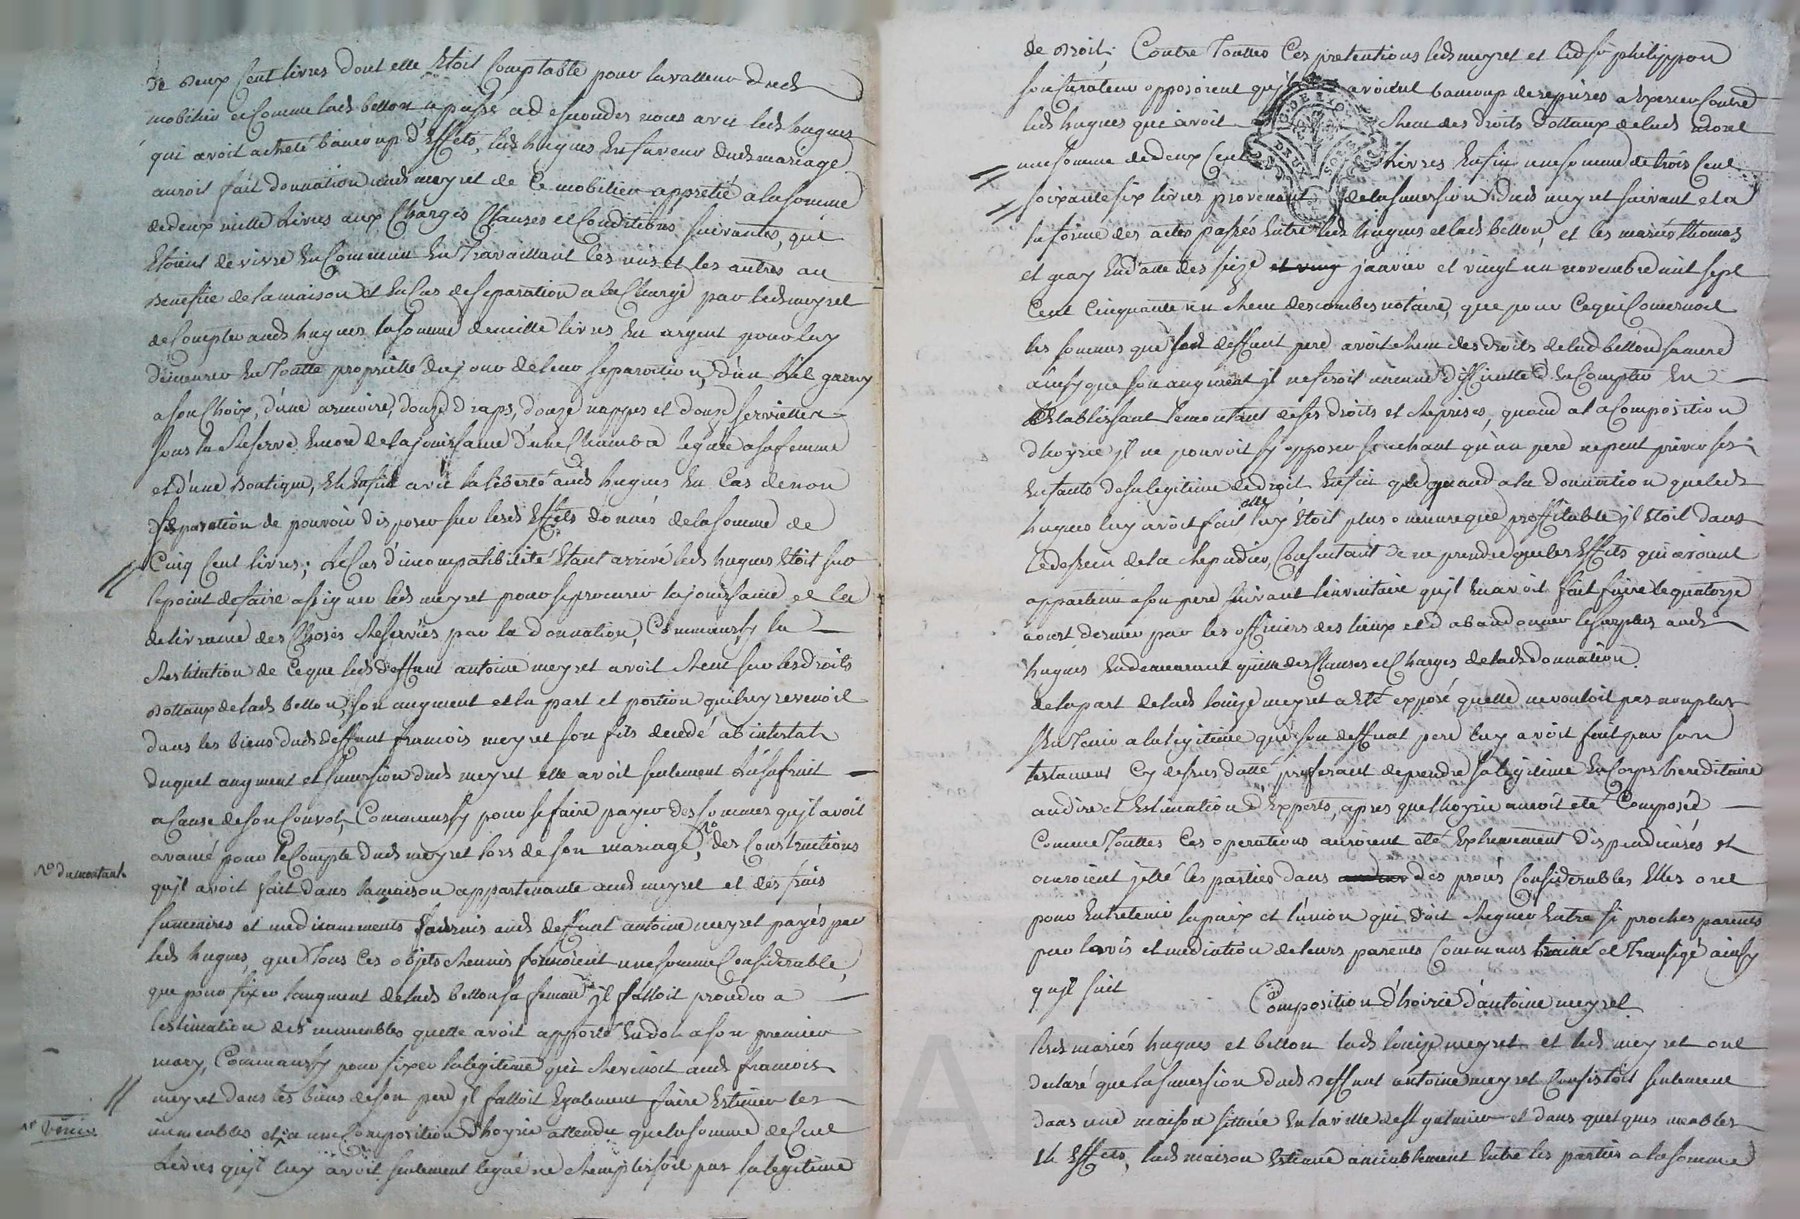 de deux cent livres dont elle etoit comptable pour la valleur dud
mobilier et comme lad bellon a passé a de secondes noces avec led hugues
qui avoit acheté baucoup d'effets, led hugues en faveur dud mariage
auroit fait donnation aud meyret de ce mobilier appretié a la somme
de deux mille livres aux charges clauses et conditions suivantes, qui
etoient de vivre en commun en travaillant les uns et les autres au
benefice de la maison et en cas de separation a la charge par led meyret
de compter aud hugues la somme de mille livres en argent pour luy
demeurer en toutte proprietté du jour de leur separation, d'un lit garny
a son choix, d'une armoire, douze draps, douze nappes et douze serviettes
sous la reserve encore de la jouissance d'une chambre leguée a sa femme
et d'une boutique, et enfin avec la liberté aud hugues en cas de non
separation de pouvoir disposer sur lesd effets donnés de la somme de
cinq cent livres; le cas d'incompatibilité etant arrivé led hugues etoit sur
le point de faire assigner led meyret pour se procurer la jouissance et la
delivrance des choses reservées par la donnation, comm'aussy la
restitution de ce que led deffunt antoine meyret avoit receu sur les droits
dottaux de lad bellon, son augment et la part et portion qui luy revenoit
dans les biens dud deffunt francois meyret son fils decedé ab intestat
duquel augment et succession dud meyret elle avoit seulement l'usufruit
a cause de son convol, comm'aussy pour se faire payer des sommes qu'il avoit
avancé pour le compte dud meyret lors de son mariage, des constructions
no du montant
qu'il avoit fait dans la maison appartenante aud meyret et des frais
funeraires et medicamments fournis aud deffunt antoine meyret payés par
led hugues, que tous ces objets reunis formoient une somme considerable,
que pour fixer l'augment de lad bellon sa femme il falloit proceder a
l'estimation des immeubles quelle avoit apporté en dot a son premier
mary, comm'aussy pour fixer la legitime qui revenoit aud francois
meyret dans les biens de son pere il falloit egalement faire estimer les
immeubles et a une composition d'hoyrie attendu que la somme de cent
livres qu'il luy avoit seulement legué ne remplissoit pas sa legitime
de droit; Contre touttes ces pretentions led meyret et led sr philippon
son curateur opposoient qu'il avoient baucoup de reprises a exercer contre
led hugues qui avoit receu des droits dottaux de lad
une somme de deux cent livres enfin une somme de trois cent
soixante six livres provenant de la succession dud meyret suivant et a
la forme des actes passés entre led hugues et lad bellon, et les mariés thomas
et gay en datte des seize janvier et vingt un novembre mil sept
cent cinquante un receu descombes notaire, que pour ce qui concernoit
les sommes que led deffunt pere avoit receu des droits de lad bellon sa mere
ainsy que son augment il ne feroit aucune difficulté d'en compter en
etablissant le montant de ses droits et reprises, quand a la composition
d'hoyrie il ne pouvoit sy opposer scachant qu'un pere ne peut priver ses
enfants de sa legitime de droit enfin que quand a la donnation que led
hugues luy avoit fait elle luy étoit plus onnereuse que proffitable il etoit dans
le dessein de la repudier, consentant de ne prendre que les effets qui avoient
appartenu a son pere suivant l'inventaire qu'il en avoit fait faire le quatorze
aoust dernier par les officiers des lieux et d'abandonner le surplus aud
hugues en demeurant quitte des clauses et charges de lad donnation.
de la part de lad louize meyret a eté exposé quelle ne vouloit pas non plus
s'en tenir a la legitime que son deffunt pere luy avoit fait par son
testament cy dessus datté preferant de prendre sa legitime en corps hereditaire
au dire et estimation d'experts, apres que l'hoyrie auroit eté composée
comme touttes ces operations auroient eté extremement dispendieuses et
auroient jetté les parties dans des procés considerables elles ont
pour entretenir la paix et l'union qui doit regner entre si proches parents
par l'avis et mediation de leurs parents communs traité et transigé ainsy
qu'il suit
Composition d'hoirie d'antoine meyret
lesd mariés hugues et bellon lad louize meyret et led meyret ont
declaré que la succession dud deffunt antoine meyret consistoit seulement
dans une maison scittuée en la ville de st galmier et dans quelques meubles
et effets, lad maison estimée amiablement entre les parties a la somme